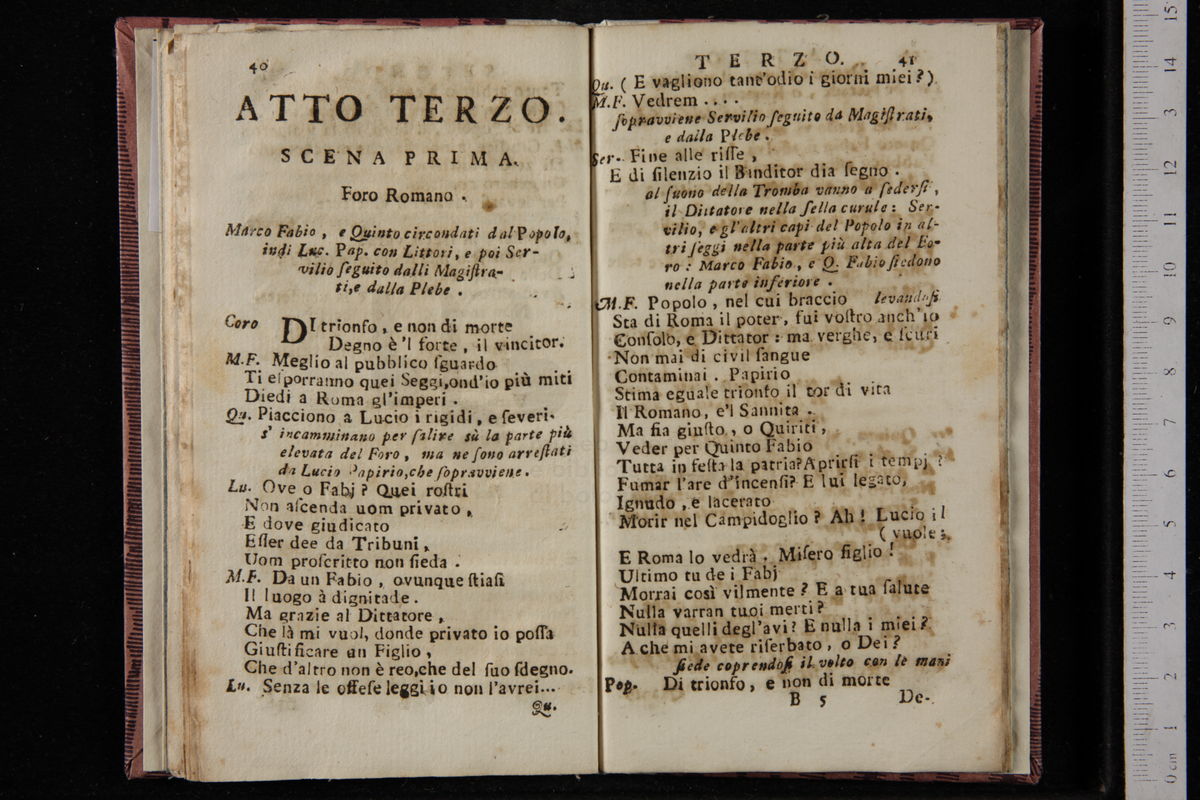 40
ATTO TERZO.
SCENA PRIMA.
Foro Romano .
Marco Fabio , e Quinto circondati dal Popolo,
indi Luc. Pap. con Littori, e poi Ser-
vilio ſeguito dalli Magiſtra-
ti,e dalla Plebe .
Coro DI trionfo , e non di morte
Degno è 'l forte , il vincitor.
M.F. Meglio al pubblico ſguardo
Ti eſporranno quei Seggi,ond'io più miti
Diedi a Roma gl'imperi .
Qu. Piacciono a Lucio i rigidi , e ſeveri.
s' incamminano per ſalire sù la parte più
elevata del Foro , ma ne ſono arreſtati
da Lucio Papirio,che ſopravviene .
Lu. Ove o Fabj ? Quei roſtri
Non aſcenda uom privato ,
E dove giudicato
Eſſer dee da Tribuni ,
Uom proſcritto non ſieda .
M.F. Da un Fabio , ovunque ſtiaſi
Il luogo à dignitade .
Ma grazie al Dittatore ,
Che là mi vuol, donde privato io poſſa
Giuſtificare un Figlio ,
Che d'altro non è reo,che del ſuo ſdegno.
Lu. Senza le offeſe leggi io non l'avrei...
Qu.
TERZO. 41
Qu. ( E vagliono tant'odio i giorni miei ? )
M.F. Vedrem . . . .
ſopravviene Servilio ſeguito da Magiſtrati,
e dalla Plebe .
Ser. Fine alle riſſe ,
E di ſilenzio il Banditor dia ſegno .
al ſuono della Tromba vanno a ſederſi ,
il Dittatore nella ſella curule : Ser-
vilio, e gl'altri capi del Popolo in al-
tri ſeggi nella parte più alta del Fo-
ro : Marco Fabio , e Q. Fabio ſiedono
nella parte inferiore .
M.F. Popolo , nel cui braccio levandoſi
Sta di Roma il poter , fui voſtro anch'io
Conſolo, e Dittator : ma verghe, e ſcuri
Non mai di civil ſangue
Contaminai . Papirio
Stima eguale trionfo il tor di vita
Il Romano, e'l Sannita .
Ma ſia giuſto , o Quiriti ,
Veder per Quinto Fabio
Tutta in feſta la patria? Aprirſi i tempj ?
Fumar l'are d'incenſi? E lui legato,
Ignudo , e lacerato
Morir nel Campidoglio ? Ah ! Lucio il
( vuole ;
E Roma lo vedrà . Miſero figlio !
Ultimo tu de i Fabj
Morrai così vilmente ? E a tua ſalute
Nulla varran tuoi merti ?
Nulla quelli degl'avi? E nulla i miei ?
A che mi avete riſerbato , o Dei ?
ſiede coprendoſi il volto con le mani
Pop. Di trionfo , e non di morte
B 5 De-
0 cm 1 2 3 4 5 6 7 8 9 10 11 12 13 14 15